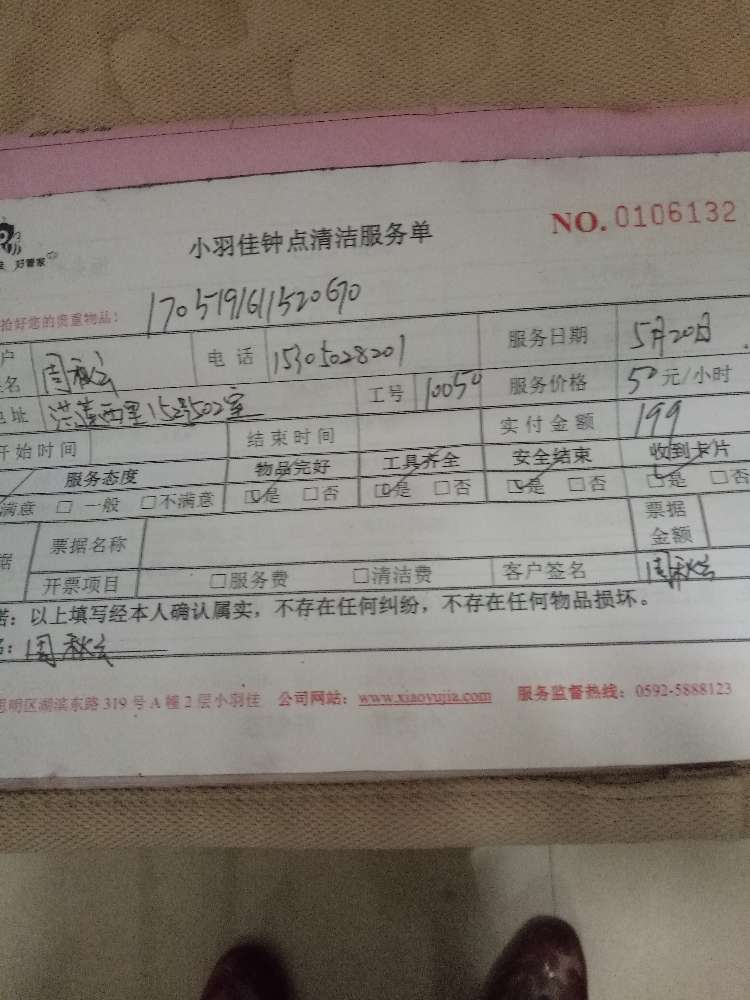 NO.0106132
小羽佳钟点清洁服务单
好管家
拾好您的贵重物品：1705191611520670
户 名 周秋云 电话 15305028201 服务日期 5月20日
地址 洪莲西里152号502室 工号 10050 服务价格 50元/小时
开始时间 结束时间 实付金额 199
服务态度 物品完好 工具齐全 安全结束 收到卡片
满意 □ 一般 □不满意 ☑是 □否 ☑是 □否 ☑是 □否 ☑是 □否
据 票据名称 票据金额
开票项目 □服务费 □清洁费 客户签名 周秋云
诺：以上填写经本人确认属实，不存在任何纠纷，不存在任何物品损坏。
名：周秋云
思明区湖滨东路319号A幢2层小羽佳 公司网站：www.xiaoyujia.com 服务监督热线：0592-5888123